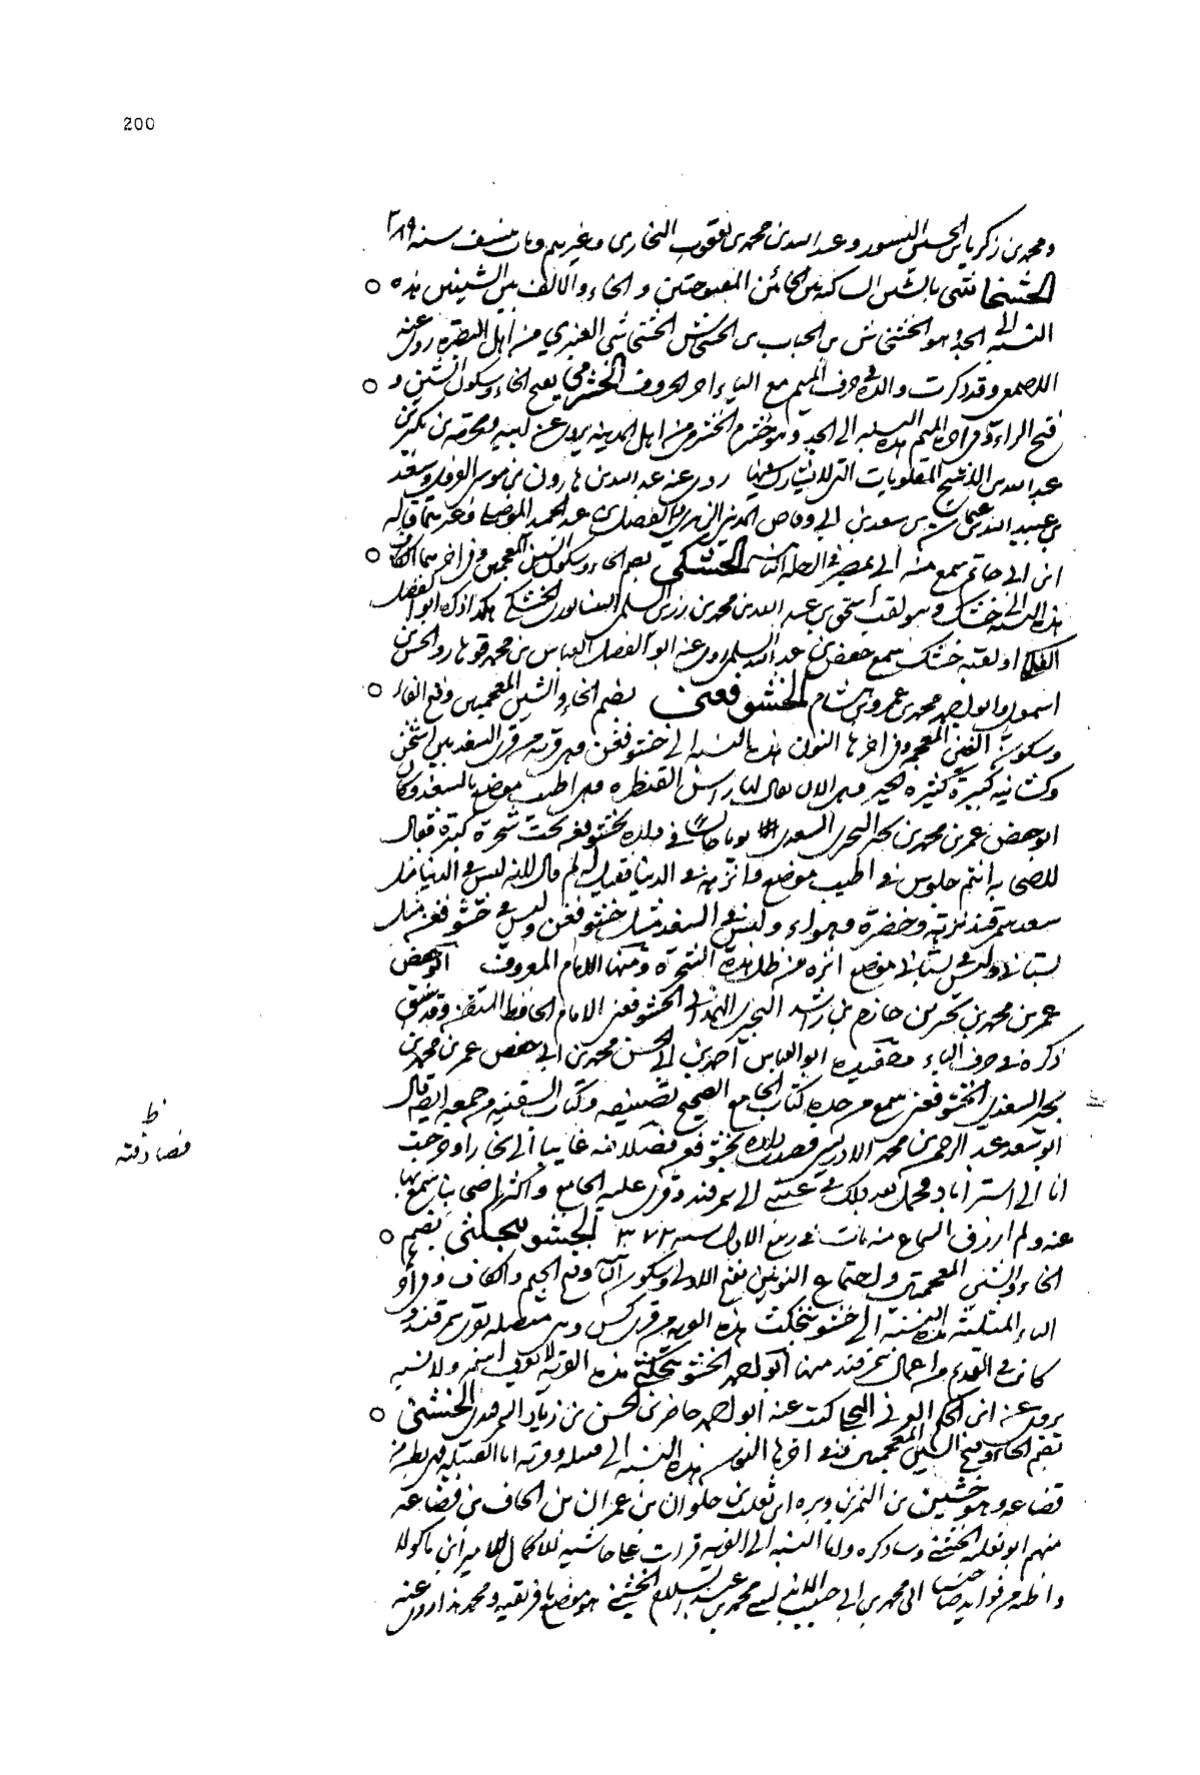 200
ومحمد بن زكريا بن الحسين النسور وعبد الله بن محمد بن يعقوب البخارى وغيرهم ومات بنسف سنة
الخشخاشى بالشين الساكنة بين الخائين المفتوحتين والخاء والالف بين الشينين هذه
النسبة الى الجد وهو الخشخاش بن الحباب بن الخشخاش الخشخاشى العنبري من اهل البصرة روى عنه
الاصمعى وقد ذكرت والده فى حرف الميم مع الياء اخر الحروف الخشرمي بفتح الخاء وسكون الشين و
فتح الراء وفى اخره الميم هذه النسبة الى الجد وهو خشرم الخشرم من اهل المدينة يروى عن ابيه ومخرمة بن بكير بن
عبد الله بن الاشج المقلوبات التى لا يشارك فيها روى عنه عبد الله بن هارون بن موسى الفروى وسعد
بن عبيد الله
ابن ابى حاتم سمع منه ابى بمصر فى الرحلة الثانية الخشكى بضم الخاء وسكون الشين المعجمتين وفى اخرهما الكاف
هذه النسبة الى خشك وهو لقب اسحق بن عبد الله بن محمد بن رزين السلمى النيسابورى الخشكى هكذا ذكره ابو الفضل
الفلكى او لقبه خشك سمع حفص بن عبد الله السلمى روى عنه ابو الفضل العباس بن محمد بن قوهار والحسن بن
اسمعيل وابو احمد محمد بن عمرو بن هشام الخشوفغنى بضم الخاء والشين المعجمتين وفتح الفاء
وسكون الغين المعجمة وفى اخرها النون هذه النسبة الى خشوفغن وهى قرية من قرى السغد بين اشتيخن
وكشانية كبيرة كثيرة الخير وهى الان يقال لها راس القنطرة وهى اطيب موضع بالسغد وكان
ابو حفص عمر بن محمد بن بجير البجيرى السغدى يوما جالسا فى داره بخشوفغن تحت شجرة كبيرة فقال
لاصحابه انتم جلوس فى اطيب موضع وانزهه فى الدنيا فقيل له لم قال لانه ليس فى الدنيا مثل
سغد سمرقند نزهة وخضرة وهواء وليس فى السغد مثل خشوفغن وليس فى خشوفغن مثل
بستانى وليس فى بستانى موضع انزه من ظل هذه الشجرة ومنها الامام المعروف ابو حفص
عمر بن محمد بن بجير بن خازم بن راشد البجيرى الهمدانى الخشوفغنى الامام الحافظ المتقن وقد سبق
ذكره فى حرف الباء وحفيده ابو العباس احمد بن ابى الحسن محمد بن ابى حفص عمر بن محمد بن
بجير السغدى الخشوفغنى سمع من جده كتاب الجامع الصحيح تصنيفه وكتاب السفينة من جمعه ايضا قال
ابو سعد عبد الرحمن بن محمد الادريسى قصدت داره بخشوفغن فضلا انه غايبا الى بخارا وخرجت
انا الى استراباد فحمل بعد ذلك فى غيبتى الى سمرقند وقرئ عليه الجامع واكثر اصحابنا سمع بها
عنه ولم ارزق السماع منه مات فى ربيع الاول سنة ٣٧٢ الخشوننجكثى بضم
الخاء والشين المعجمتين واجتماع النونين بفتح الاولى وسكون الثانية وفتح الجيم والكاف وفى اخرها
الثاء المثلثة هذه النسبة الى خشوننجكث هذه القرية من قرى كس وهى متصلة بقرى سمرقند و
كانت فى القديم من اعمال سمرقند منها ابو احمد الخشوننجكثى هذه القرية لا يعرف اسمه ولا نسبه
يروى عنه ابن الحكم كتب عنه ابو احمد حاضر بن الحسن بن زياد السمرقندى الخشنى
بضم الخاء وفتح الشين المعجمتين وفى اخرها النون هذه النسبة الى قبيلة وقرية اما القبيلة فهى بطن من
قضاعة وهو خشين بن النمر بن وبرة بن ثعلب بن حلوان بن عمران بن الحاف بن قضاعة
منهم ابو ثعلبة الخشنى وساذكره واما النسبة الى القرية قرات على حاشية للاكمال للامير ابن ماكولا
واظنه من فوايد صاحبنا ابى محمد بن ابى حبيب الاندلسى محمد بن عبد السلام الخشنى هو موضع بافريقية ومحمد هذا روى عنه
ظ
فصادفته